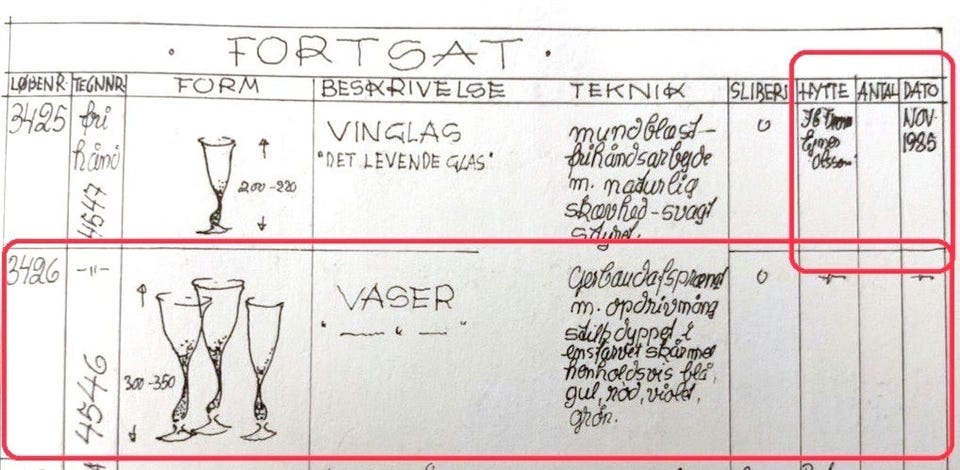 FORTSAT.
LØBENR. TEGNNR. FORM BESKRIVELSE TEKNIK SLIBERI HYTTE ANTAL DATO
3425 fri hånd 4547
200-220
VINGLAS
"DET LEVENDE GLAS"
mundblæst-
frihåndsarbejde
m. naturlig
skævhed-svagt
styret.
0
Ejner
Olsson
NOV.
1985
3426 -"- 4546
300-350
VASER
" — " — "
m. opdrivning
stilk dyppet i
ensfarvet skårmel
henholdsvis blå,
gul, rød, violet,
grøn.
0 -"- -"-